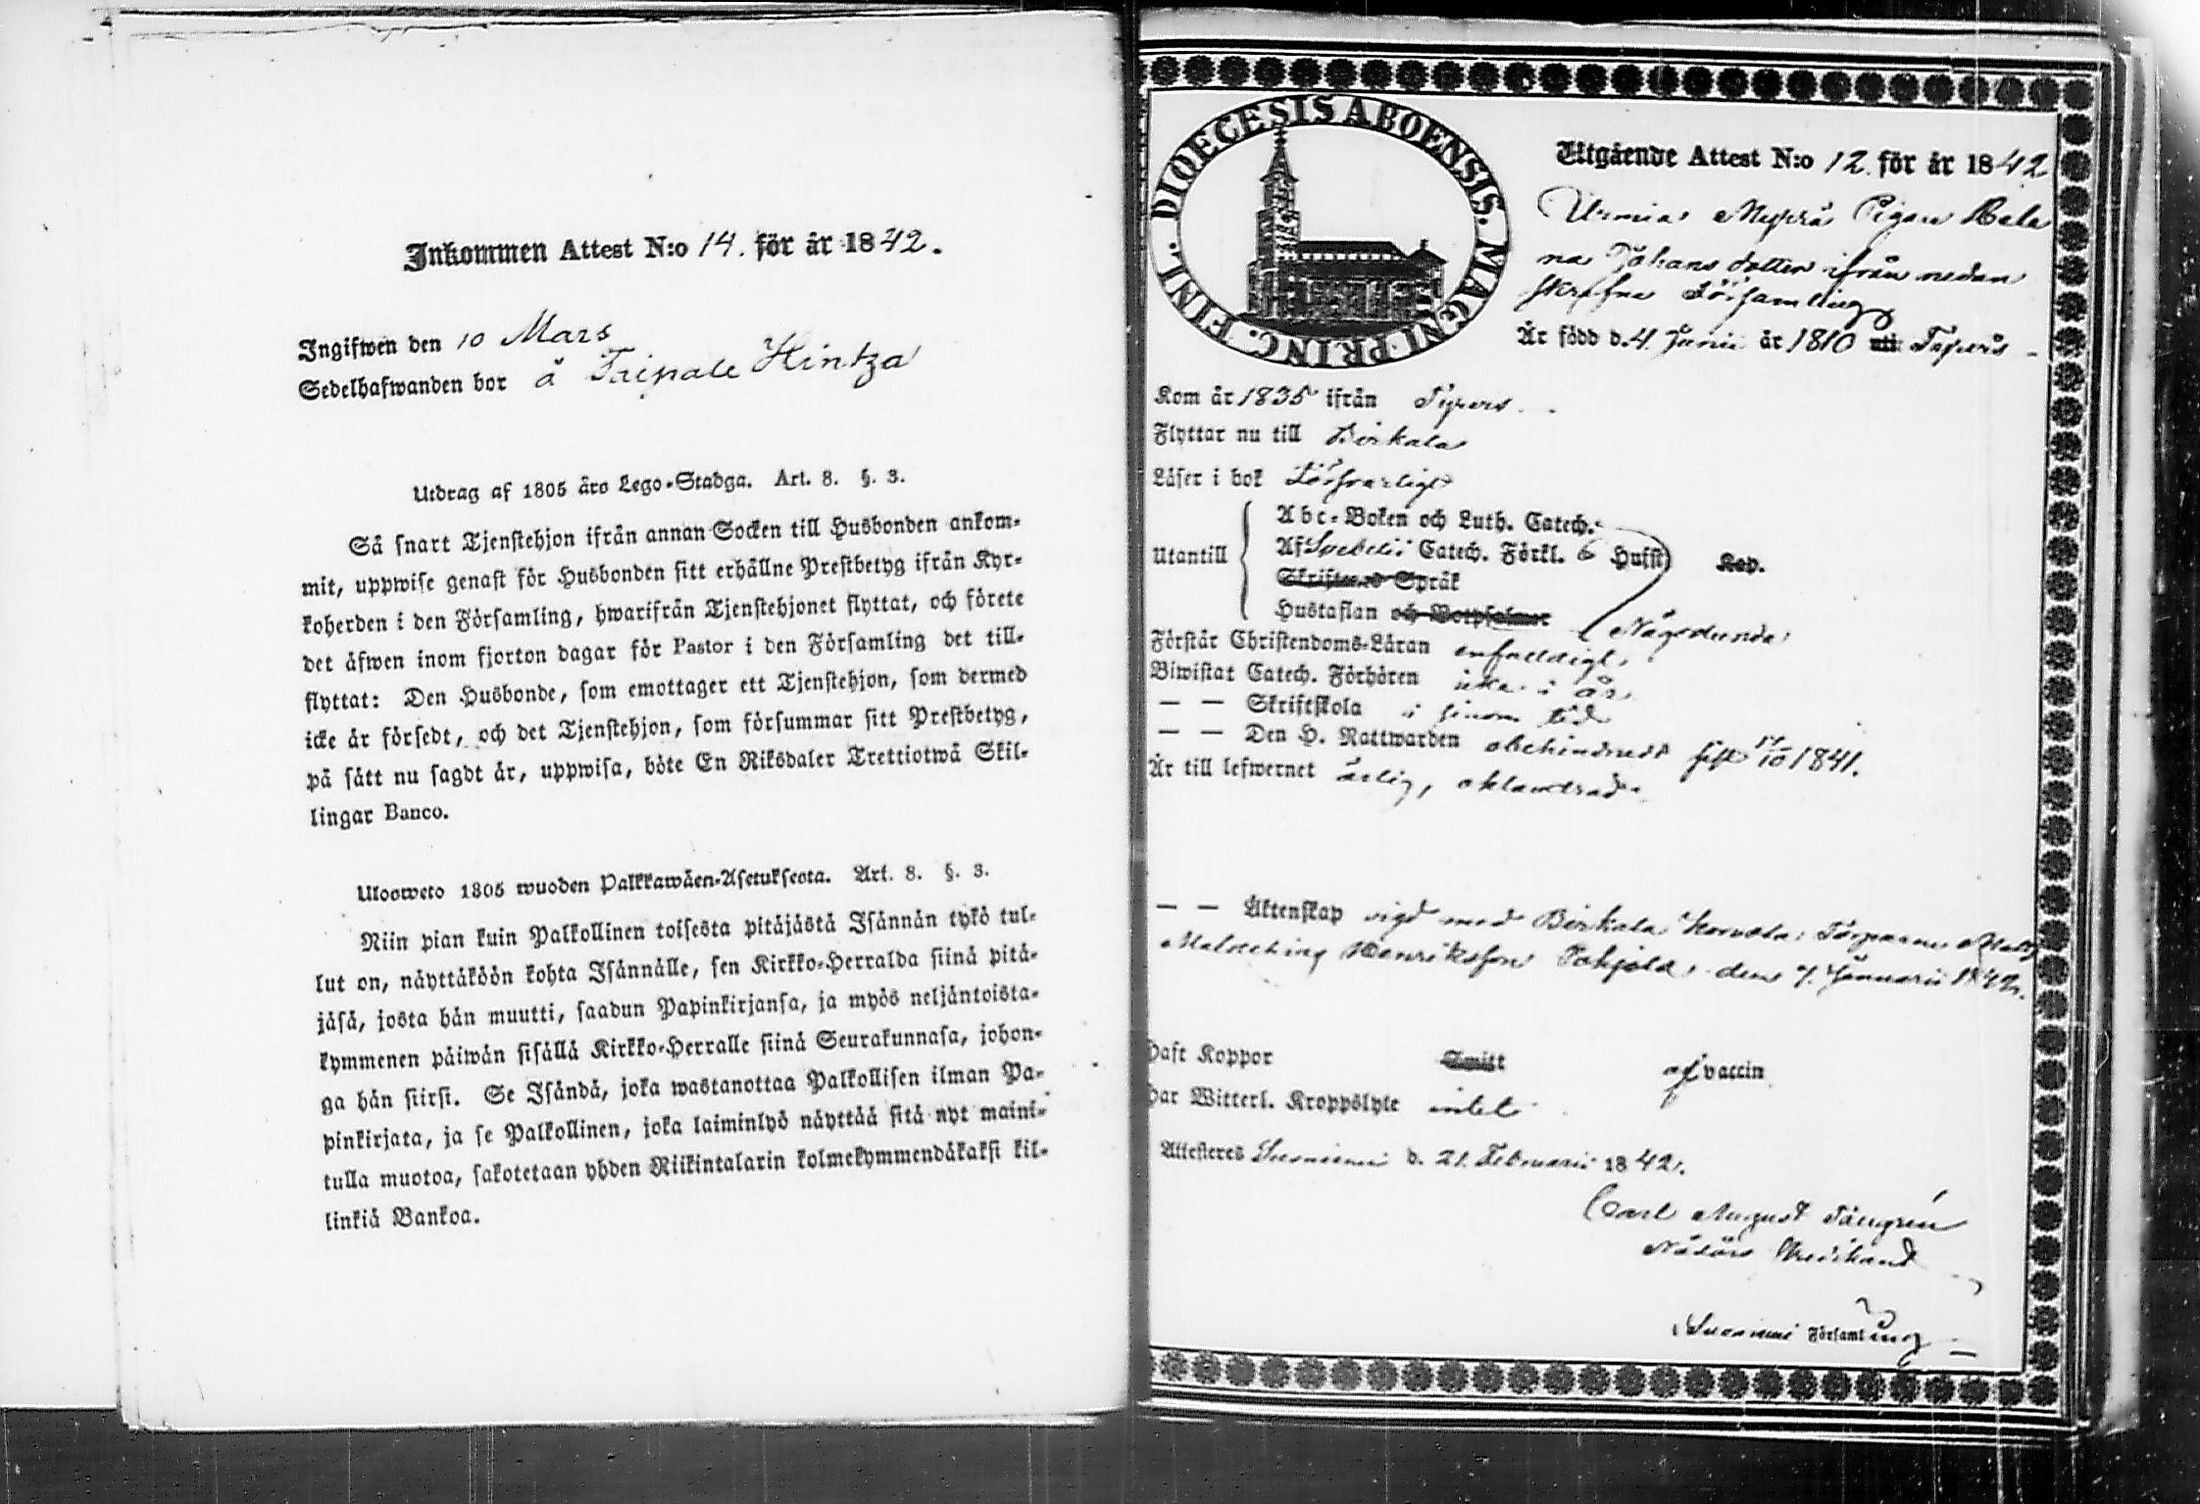 Inkommen Attest N:o 14. för år 1842.
Ingifwen den 10 Mars
Sedelhafwanden bor å Taipale Hintza
Utdrag af 1805 års Lego-Stadga. Art. 8. §. 3.
Så snart Tjenstehjon ifrån annan Socken till Husbonden ankom-
mit, uppwise genast för Husbonden sitt erhållne Prestbetyg ifrån Kyr-
koherden i den Församling, hwarifrån Tjenstehjonet flyttat, och förete
det äfwen inom fjorton dagar för Pastor i den Församling det till-
flyttat: Den Husbonde, som emottager ett Tjenstehjon, som dermed
icke är försedt, och det Tjenstehjon, som försummar sitt Prestbetyg,
på sätt nu sagdt är, uppwisa, böte En Riksdaler Trettiotwå Skil-
lingar Banco.
Ulosweto 1805 wuoden Palkkawäen-Asetuksesta. Art. 8. §. 3.
Niin pian kuin Palkollinen toisesta pitäjästä Isännän tykö tul-
lut on, näyttäköön kohta Isännälle, sen Kirkko-Herralda siinä pitä-
jäsä, josta hän muutti, saadun Papinkirjansa, ja myös neljäntoista-
kymmenen päiwän sisällä Kirkko-Herralle siinä Seurakunnasa, johon-
ga hän siirsi. Se Isändä, joka wastanottaa Palkollisen ilman Pa-
pinkirjata, ja se Palkollinen, joka laiminlyö näyttää sitä nyt maini-
tulla muotoa, sakotetaan yhden Riikintalarin kolmekymmendäkaksi kil-
linkiä Bankoa.
DIOECESIS ABOENSIS. MAGNI PRINC. FINL.
Utgående Attest N:o 12. för år 1842
Pigan Hele
na Johans dotter ifrån nedan
skrefne Församling
Är född d. 4. Junii år 1810 uti
Kom år 1835 ifrån
Flyttar nu till Birkala
Läser i bok Försvarligt
Utantill
Abc-Boken och Luth. Catech.
Af Svebelii Catech. Förkl. 6 Hufst Kap.
Skriftens Språk
Hustaflan och Botpsalmer Någorlunda
Förstår Christendoms-Läran enfaldigt
Biwistat Catech. Förhören icke i år
— — Skriftskola i sinom tid
— — Den H. Nattwarden obehindrad sist 17/10 1841.
Är till lefwernet ärlig, oklandrad
— — Äktenskap vigd med Birkala Torparen
Henriksson Pohjola den 7. Januarii 1842.
Haft Koppor Smitt af vaccin
Har Witterl. Kroppslyte intet
Attesteras Suoniemi d. 21. Februarii 1842.
Carl August
Suoniemi Församling